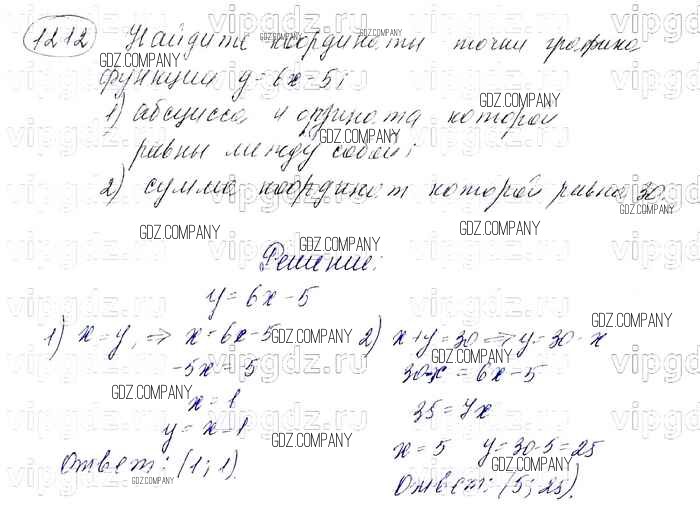 1212 Найдите координаты точки графика
функции y=6x-5;
1) абсцисса и ордината которой
равны между собой;
2) сумма координат которой равна 30.
Решение:
y=6x-5
1) x=y, ⇒ x=6x-5
-5x=5
x=1
y=x=1
Ответ: (1; 1).
2) x+y=30 ⇒ y=30-x
30-x=6x-5
35=7x
x=5 y=30-5=25
Ответ: (5; 25).
GDZ.COMPANY
vipgdz.ru